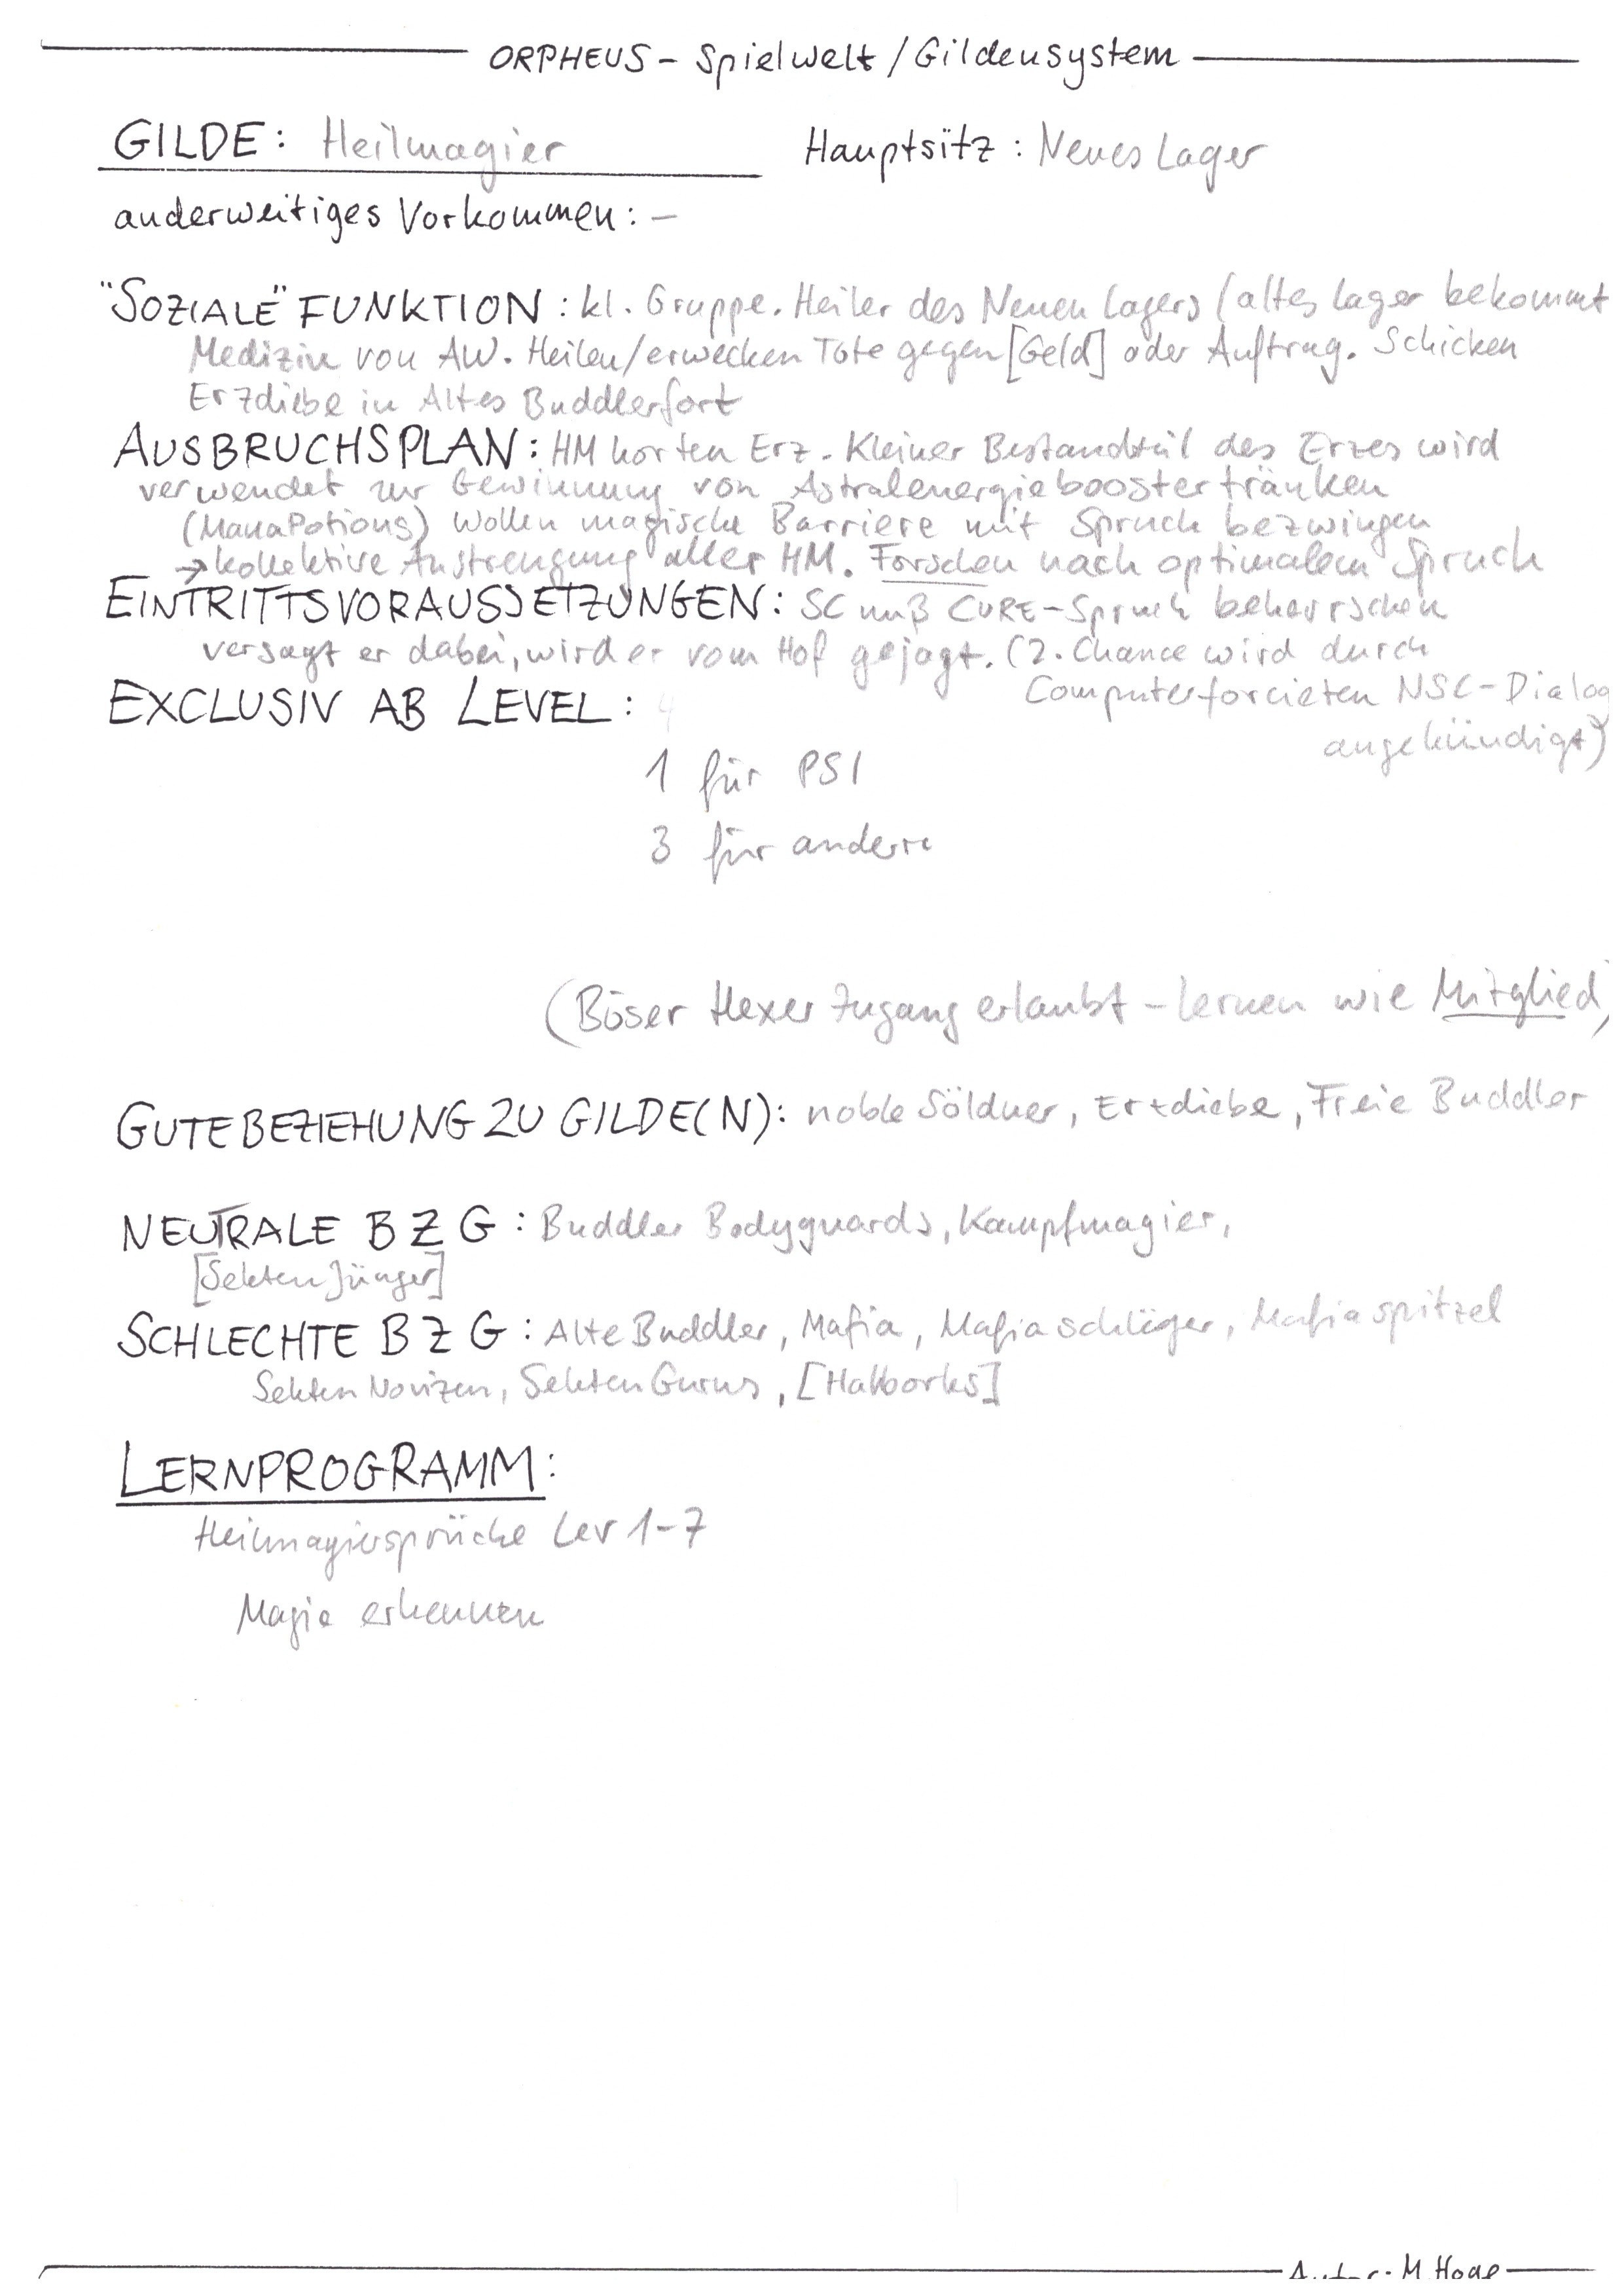 ORPHEUS - Spielwelt / Gildensystem
GILDE: Heilmagier Hauptsitz: Neues Lager
anderweitiges Vorkommen: -
"SOZIALE" FUNKTION: kl. Gruppe. Heiler des Neuen Lagers (altes Lager bekommt
Medizin von AW. Heilen/erwecken Tote gegen [Geld] oder Auftrag. Schicken
Erzdiebe in Altes Buddlerfort
AUSBRUCHSPLAN: HM horten Erz. Kleiner Bestandteil des Erzes wird
verwendet zur Gewinnung von Astralenergieboostertränken
(ManaPotions) Wollen magische Barriere mit Spruch bezwingen
→ kollektive Anstrengung aller HM. Forschen nach optimalem Spruch
EINTRITTSVORAUSSETZUNGEN: SC muß CURE-Spruch beherrschen
versagt er dabei, wird er vom Hof gejagt. (2. Chance wird durch
Computerforcierten NSC-Dialog
angekündigt)
EXCLUSIV AB LEVEL: 4
1 für PSI
3 für andere
(Böser Hexer Zugang erlaubt - lernen wie Mitglied)
GUTE BEZIEHUNG ZU GILDE(N): noble Söldner, Erzdiebe, Freie Buddler
NEUTRALE BZG: Buddler Bodyguards, Kampfmagier,
[Sekten Jünger]
SCHLECHTE BZG: Alte Buddler, Mafia, Mafiaschläger, Mafiaspitzel
Sekten Novizen, Sekten Gurus, [Halborks]
LERNPROGRAMM:
Heilmagiersprüche Lev 1-7
Magie erkennen
Autor: M. Hoge